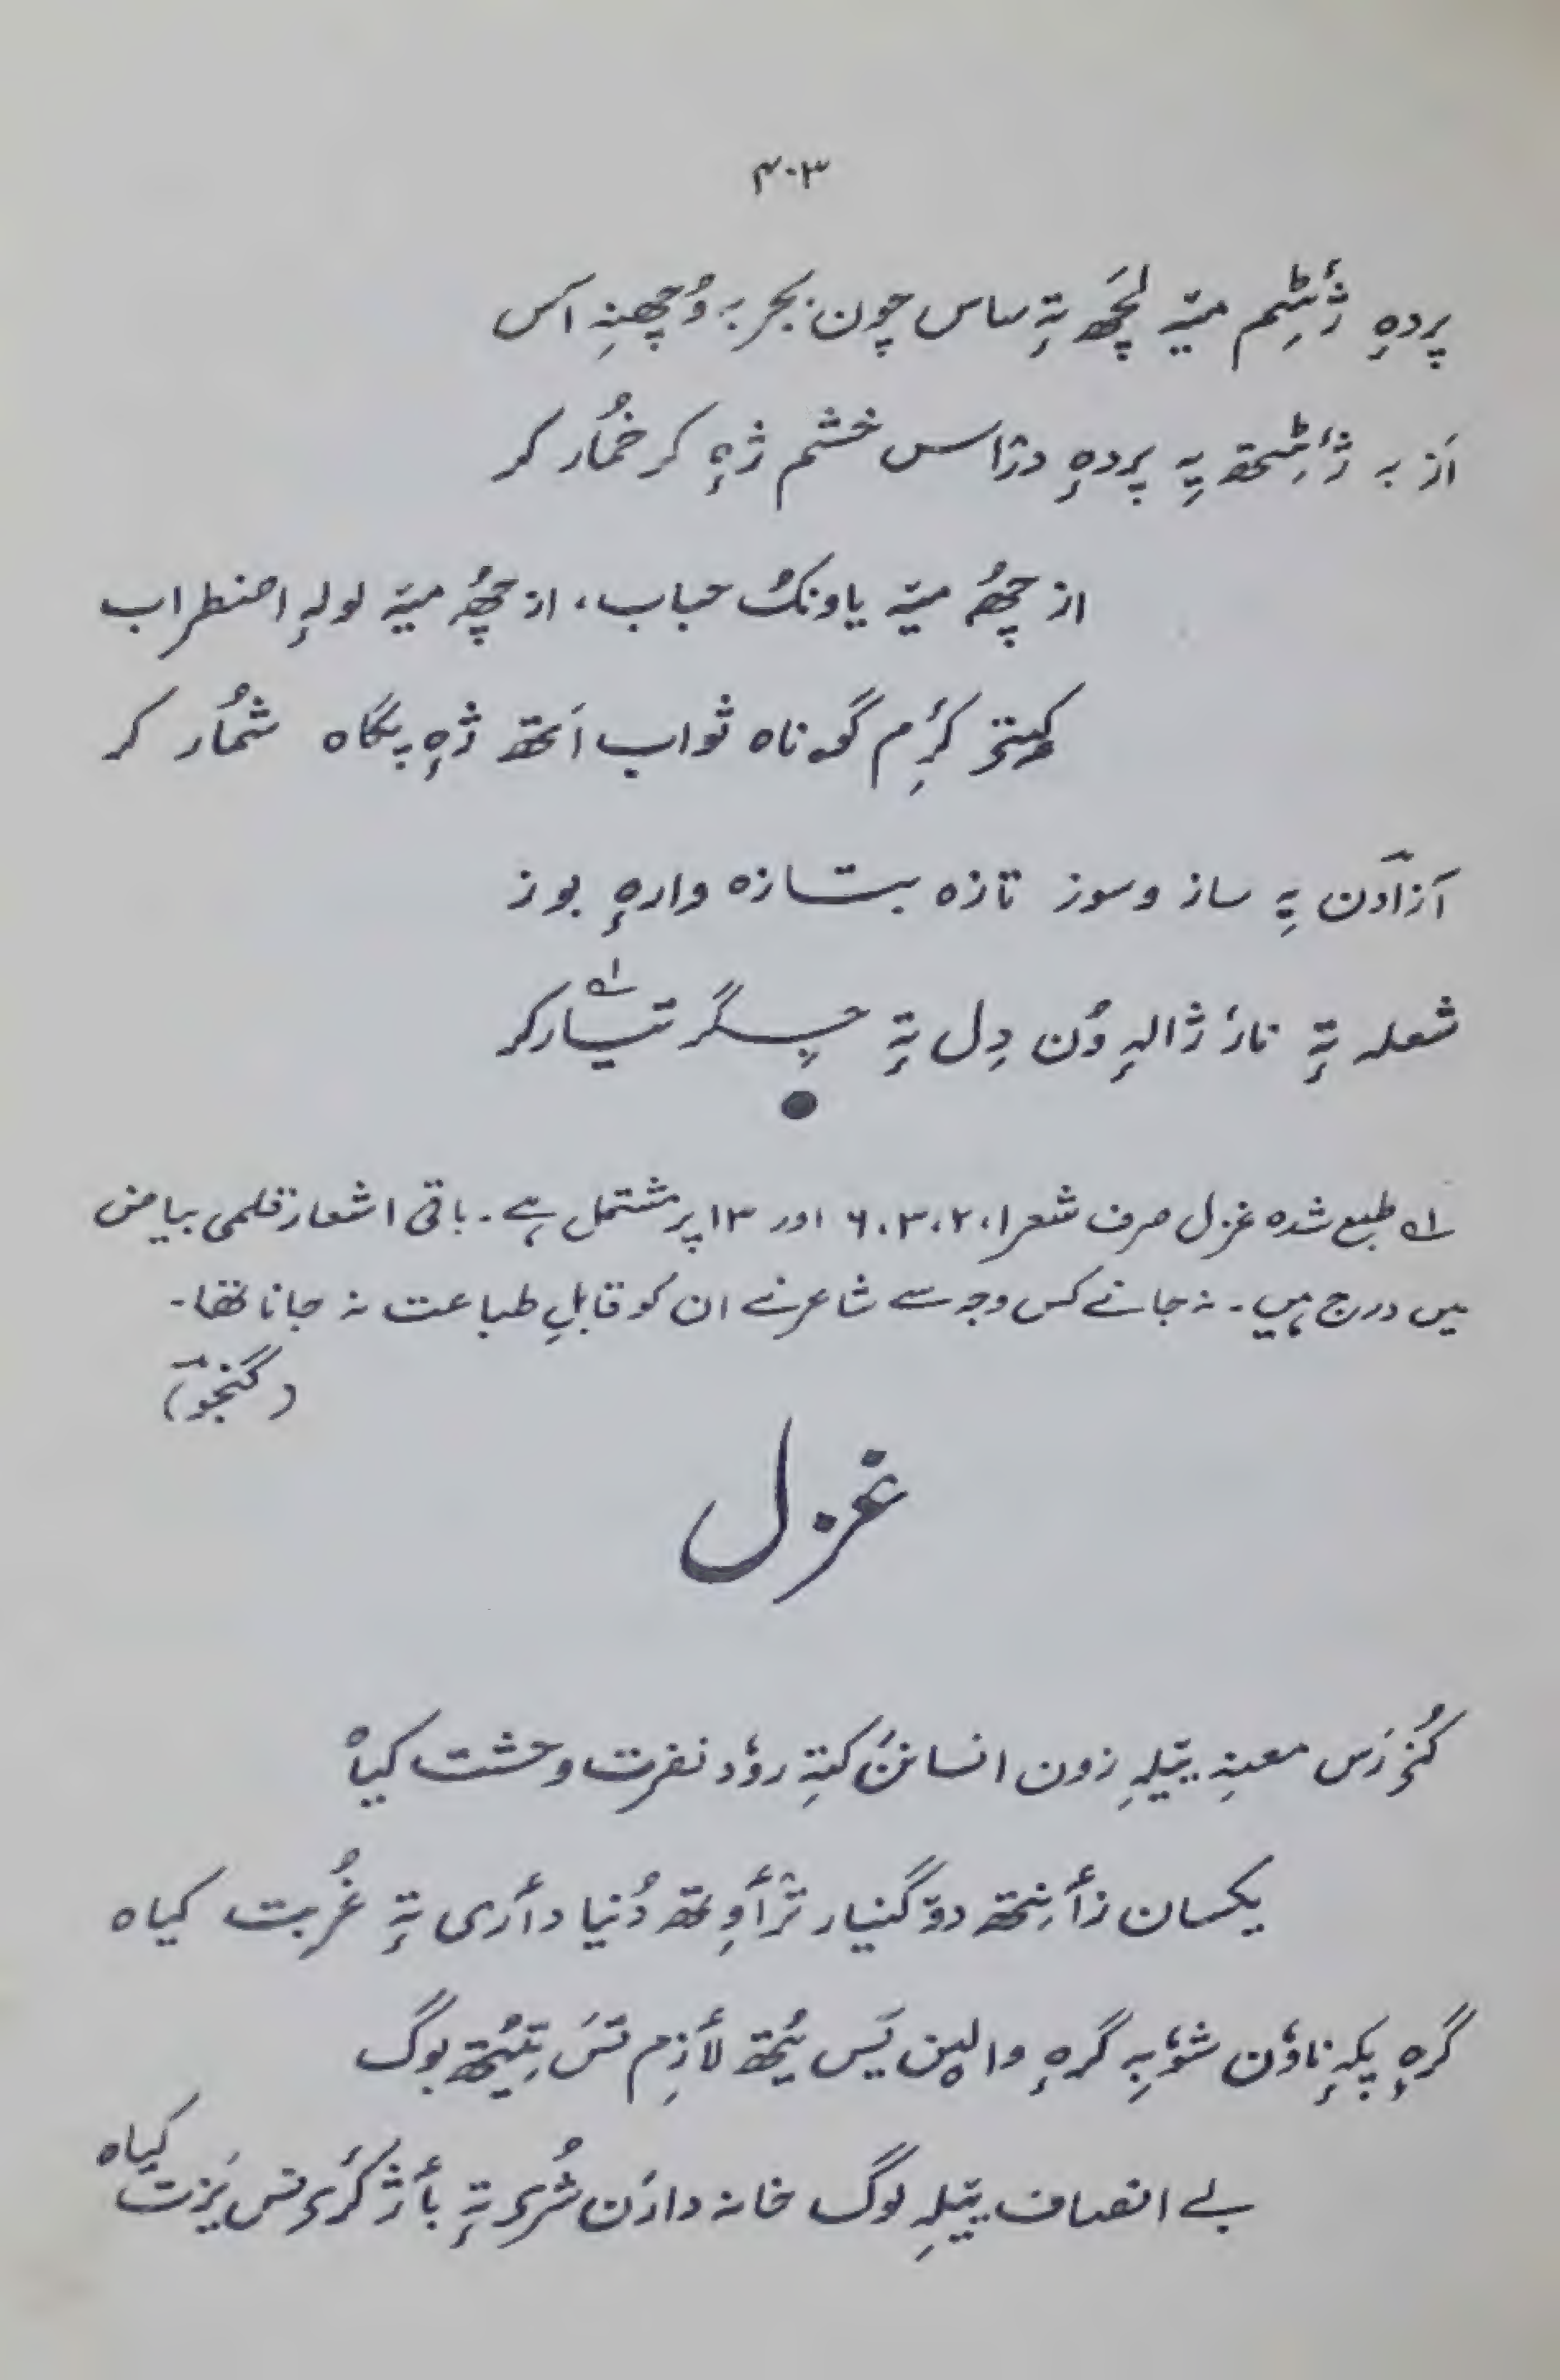 ۴۰۳
پردہِ ژٔٹِم میٚہ لچَھ تہٕ ساس چون بجر بہ وُچھنہِ آس
اَز بہ ژٔٹِتھ یہِ پردہٕ دراس خشم ژہٕ کر خُمار کر
از چھُ میٚہ یاونُک حباب، از چھُ میٚہ لولہٕ اضطراب
کیٚتز کرِٔم گۄناہ ثواب اَتھ ژہٕ پگاہ شُمار کر
آزادن یہِ ساز و سوز تازہ بتازہ وارہٕ بوز
شعلہ تہٕ نارٔ ژالہٕ وُن دِل تہٕ جِگر تیار کر ؎۱
؎۱ طبع شدہ غزل صرف شعر ۱، ۲، ۳، ۶ اور ۱۳ پر مشتمل ہے۔ باقی اشعار قلمی بیاض
میں درج ہیں۔ نہ جانے کس وجہ سے شاعر نے ان کو قابلِ طباعت نہ جانا تھا۔
(گنجو)
غزل
کُنزرَس معنہِ یتیلہِ زون انسانَن کتہِ روٗد نفرت وحشت کیاہ
یکسان زٲنِتھ دۄگنیار ترٛٲوِتھ دُنیا دٲری تہٕ غُربت کیاہ
گرہٕ پکہٕ ناوَن شوٗبہِ گرہٕ والیٚن یَس یُتھ لٲزِم تَس تِیُتھ بوگ
بے انصاف یتیلہِ لوگ خانہ دارَن شُری تہٕ بٲژ کرٔی تس یزت کیاہ